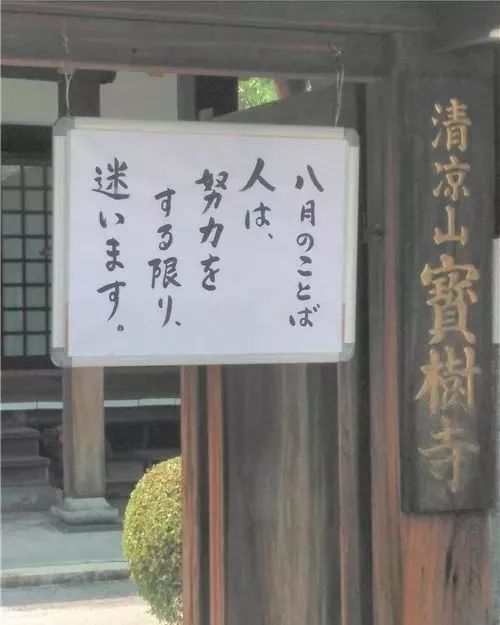 八月のことば
人は、
努力を
する限り、
迷います。
清涼山寶樹寺